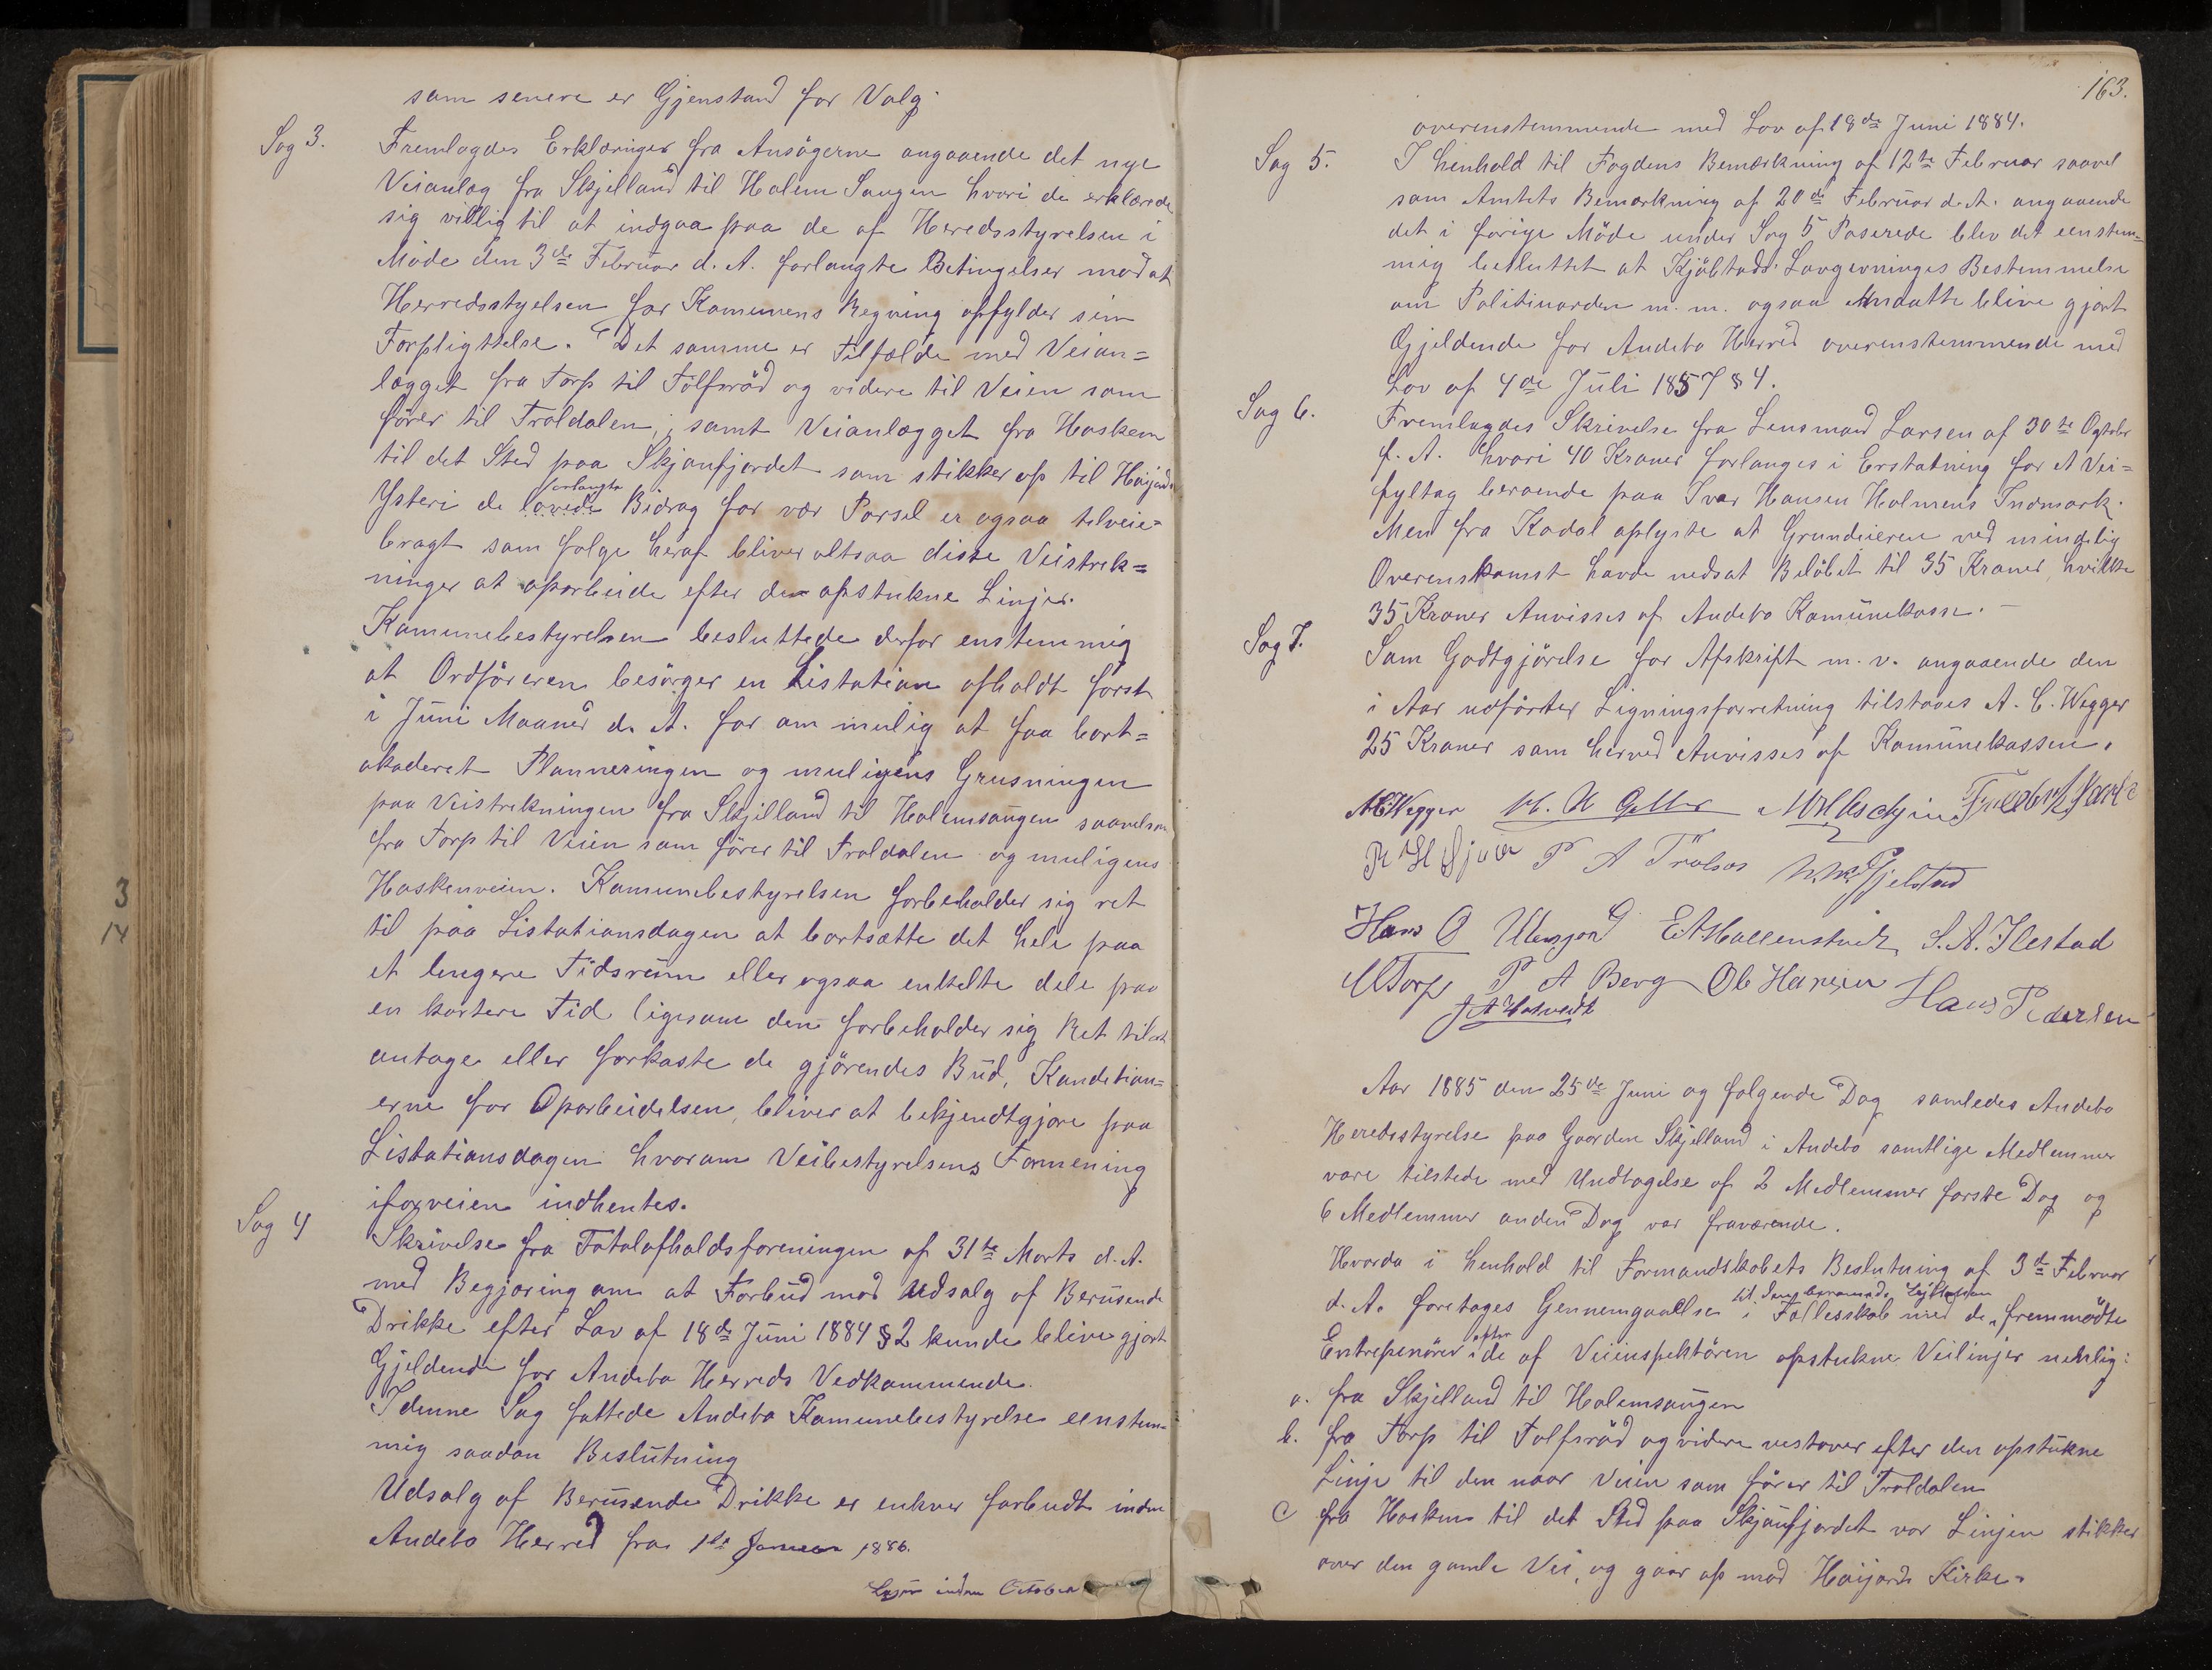 som senere er Gjenstand for Valg.
Sag 3. Fremlagdes Erklæringer fra Ansögerne angaaende det nye
Veianlæg fra Skjelland til Holem Saugen hvori de erklærede
sig villig til at indgaa paa de af Heredsstyrelsen i
Möde den 3de Februar d. A. forlangte Betingelser mod at
Herredsstyelsen for Komunens Regning opfylder sin
Forpligttelse. Det samme er Tilfælde med Veian=
lægget fra Torp til Tolfsröd og videre til Veien som
förer til Troldalen, samt Veianlægget fra Hasken
til det Sted paa Skjaufjordet som stikker op til Höijords
Ysteri de lovede forlangte Bidrag for vær Parsel er ogsaa tilveie=
bragt som folge heraf bliver altsaa disse Veistrek=
ninger at oparbeide efter den opstukne Linjer.
Komunebestyrelsen besluttede derfor enstemmig
at Ordföreren besörger en Listation afholdt först
i Juni Maaned d. A. for om mulig at faa bort=
akoderet Planneringen og muligens Grusningen
paa Veistrekningen fra Skjelland til Holemsaugen saavelsom
fra Torp til Veien som förer til Troldalen og muligens
Haskenveien. Komunebestyrelsen forbeholder sig ret
til paa Listationsdagen at bortsætte det hele paa
et lengere Tidsrum eller ogsaa enkelte dele paa
en kortere Tid ligesom den forbeholder sig Ret til at
antage eller forkaste de gjörendes Bud, Kondition=
erne for Oparbeidelsen, bliver at bekjendtgjore paa
Listationsdagen hvorom Veibestyrelsens Formening
iforveien indhentes.
Sag 4 Skrivelse fra Totalafholdsforeningen af 31te Marts d. A.
med Begjæring om at Forbud mod Udsalg af Berusende
Drikke efter Lov af 18de Juni 1884 § 2 kunde blive gjort
Gjeldende for Andebo Herreds Vedkommende.
I denne Sag fattede Andebo Komunebestyrelse eenstem=
mig saadan Beslutning
Udsalg af Berusende Drikke er enhver forbudt inden
Andebo Herred fra 1ste Januar 1886.
inden October
163.
overenstemmende med Lov af 18de Juni 1884.
Sag 5. I henhold til Fogdens Bemærkning af 12te Februar saavel
som Amtets Bemærkning af 20de Februar d. A. angaaende
det i forige Möde under Sag 5 Paserede blev det eenstem=
mig besluttet at Kjöbstads Lovgevninges Bestemmelse
om Politivorden m. m. ogsaa maatte blive gjort
Gjeldende for Andebo Herred overenstemmende med
Lov af 4de Juli 1857 § 4.
Sag 6. Fremlagdes Skrivelse fra Lensmand Larsen af 30te Ogtober
f. A. hvori 40 Kroner forlanges i Erstatning for et Vei=
fyltag beroende paa Ivar Hansen Holmens Indmark.
Men fra Kodal oplyste at Grundeieren ved mindelig
Overenskomst havde nedsat Belöbet til 35 Kroner hvilke
35 Kroner Anvisses af Andebo Komunekasse. —
Sag 7. Som Godtgjörelse for Afskrift m. v. angaaende den
i Aar udförter Ligningsforretning tilstaaes A. C. Wegger
25 Kroner som herved Anvisses af Komunekassen.
A C Wegger
P A Trolsos Gjelstad
Hans O S. A. Ilestad
M Torp P A Berg Ole Hansen Hans Pedersen
Aar 1885 den 25de Juni og folgende Dag samledes Andebo
Heredsstyrelse paa Gaarden Skjelland i Andebo samtlige Medlemmer
vare tilstede med Undtagelse af 2 Medlemmer forste Dag og
6 Medlemmer anden Dag var fraværende.
Hvorda i henhold til Formandskabets Beslutning af 3de Februar
d. A. foretages Gennemgaaelse i Fællesskab med de fremmödte
Entrepenörer efter de af Veiinspektören opstukne Veilinjer nemlig:
a. fra Skjelland til Holemsaugen
b. fra Torp til Tolfsröd og videre vestover efter den opstukne
Linje til den naar Veien som förer til Troldalen
c fra Hasken til det Sted paa Skjaufjordet vor Linjen stikker
over den gamle Vei, og gaar op mod Höijords Kirke.